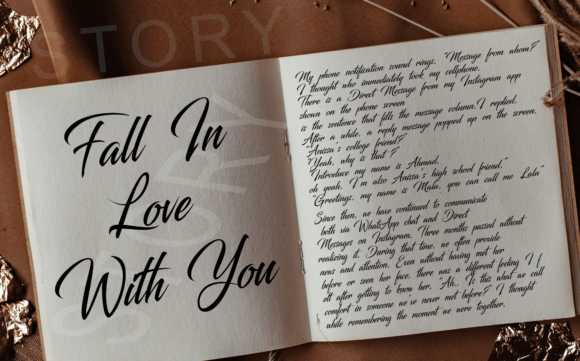 STORY
STORY
Fall In
Love
With You
My phone notification sound rings, "Message from whom?"
I thought who immediately took my cellphone.
There is a Direct Message from my Instagram app
shown on the phone screen
is the sentence that fills the message column. I replied,
After a while, a reply message popped up on the screen.
"Anissa's college friend?"
"Yeah, why is that?"
"Introduce my name is Ahmad,
oh yeah, I'm also Anissa's high school friend,"
"Greetings, my name is Mala, you can call me Lala"
Since then, we have continued to communicate
both via WhatsApp chat and Direct
Messages on Instagram. Three months passed without
realizing it. During that time, we often provide
news and attention. Even without having met her
before or seen her face, there was a different feeling I f
elt after getting to know her. "Ah.. Is this what we call
comfort in someone we've never met before?" I thought
while remembering the moment we were together.